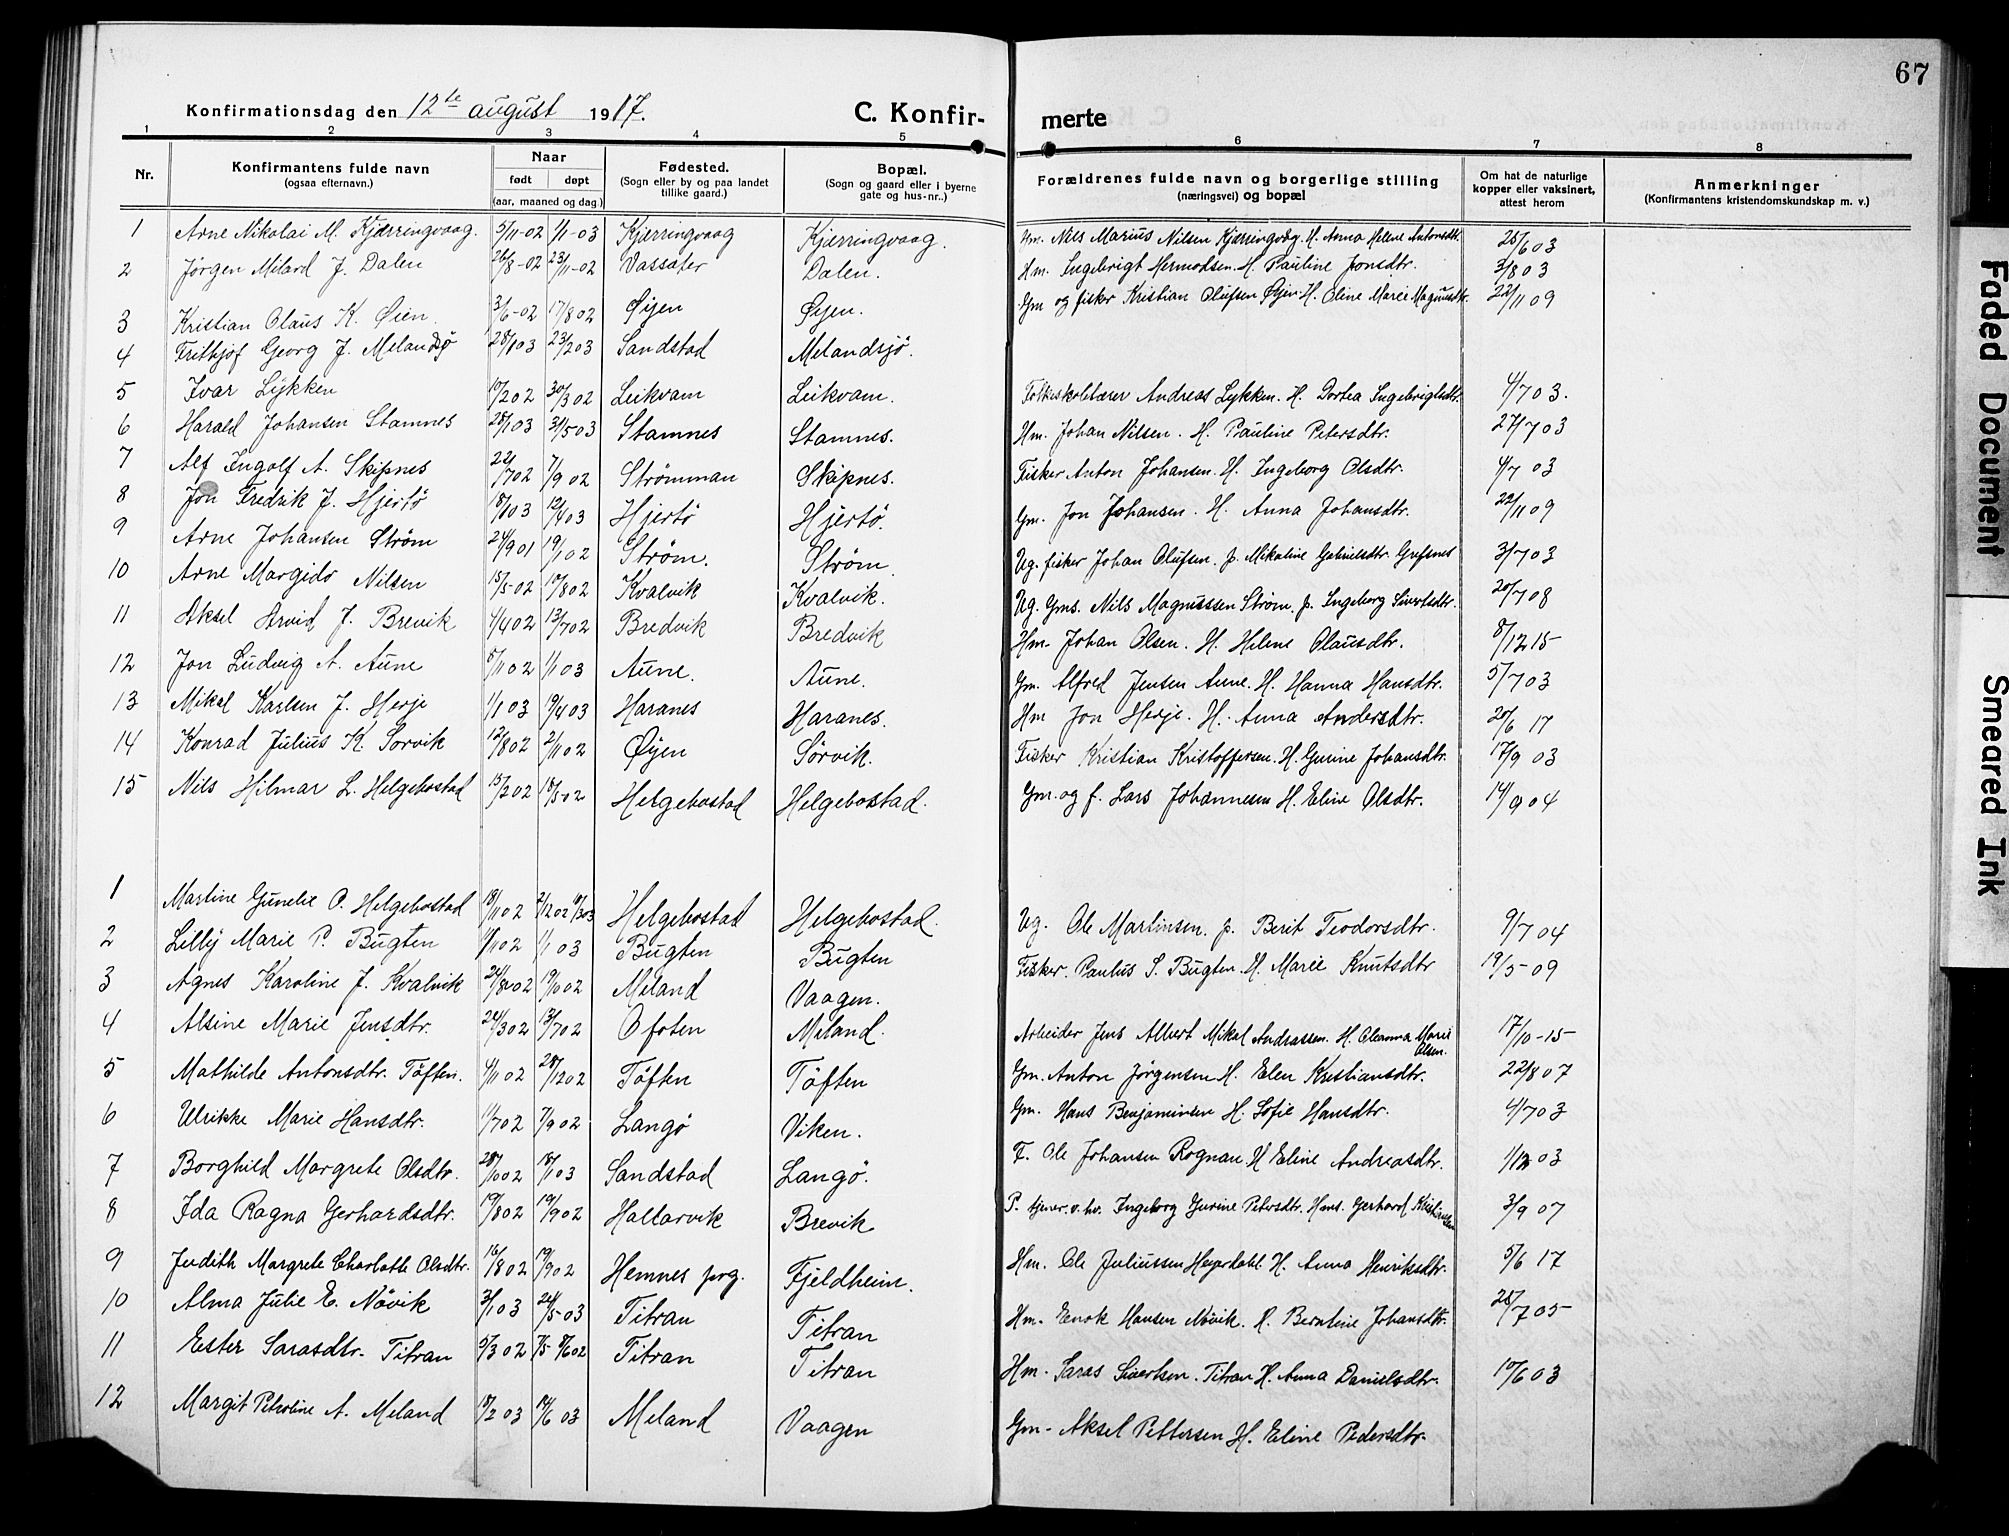 67
Konfirmationsdag den 12te august 1917.
C. Konfir-merte
1 2 3 4 5 6 7 8
Nr. Konfirmantens fulde navn (ogsaa efternavn.) Naar født døpt (aar, maaned og dag.) Fødested. (Sogn eller by og paa landet tillike gaard.) Bopæl. (Sogn og gaard eller i byerne gate og hus-nr.) Forældrenes fulde navn og borgerlige stilling (næringsvei) og bopæl Om hat de naturlige kopper eller vaksinert, attest herom Anmerkninger (Konfirmantens kristendomskundskap m. v.)
1 Arne Nikolai M. Kjærringvaag. 5/11-02 1/1-03 Kjærringvaag Kjærringvaag. Hm. Nils Marius Nilsen Kjærringvåg. H. Anna Helene Antonsdtr. 25/6 03
2 Jørgen Milard J. Dalen 26/8-02 23/11-02 Vassøter Dalen. Hm. Ingebrigt Hermodsen. H. Pauline Jonsdtr. 3/8 03
3 Kristian Olaus K. Øien. 3/6-02 17/8 02 Øyen Øyen. Gm og fisker Kristian Olufsen Øyen. H. Oline Marie Magnusdtr. 22/11 09
4 Frithjof Georg J. Melandsjø 28/1 03 23/2 03 Sandstad Melandsjö.
5 Ivar Lykken 10/2 02 30/3 02 Leikvam Leikvam. Folkeskolelærer Andreas Lykken. H. Dortea Ingebrigtsdtr. 4/7 03.
6 Harald Johansen Stamnes 28/1 03 31/5 03 Stamnes Stamnes. Hm. Johan Nilsen. H. Pauline Petersdtr. 27/7 03
7 Alf Ingolf A. Skipnes 22/7 02 7/9 02 Strömman Skipnes. Fisker Anton Johansen. H. Ingeborg Olsdtr. 4/7 03
8 Jon Fredrik J. Hjertö 18/1 03 12/4 03 Hjertö Hjertö. Gm. Jon Johansen. H. Anna Johansdtr. 22/11 09
9 Arne Johansen Strøm 24/9 01 19/1 02 Strøm. Strøm. Ug. fisker Johan Olufsen. p. Mikaline Gabrielsdtr. Grefsnes 3/7 03
10 Arne Margido Nilsen 15/5-02 10/8 02 Kvalvik Kvalvik. Ug. Gms. Nils Magnussen Strøm. p. Ingeborg Sivertsdtr. 20/7 08
11 Aksel Arvid J. Brevik 4/4 02 13/7 02 Bredvik Bredvik Hm. Johan Olsen. H. Helene Olausdtr. 8/12 15
12 Jon Ludvig A. Aune 8/11 02 1/1 03 Aune. Aune. Gm. Alfred Jensen Aune. H. Hanna Hansdtr. 5/7 03
13 Mikal Karlsen J. Herje 1/1 03 19/4 03 Haranes Haranes. Hm Jon Herje. H. Anna Andersdtr. 20/6 17
14 Konrad Julius K. Sörvik 12/8 02 2/11 02 Øyen Sörvik. Fisker Kristian Kristoffersen. H. Gurine Johansdtr. 17/9 03
15 Nils Hilmar L. Helgebostad 15/2 02 18/5 02 Helgebostad Helgebostad. Gm. og f. Lars Johannesen H. Eline Olsdtr. 14/9 04
1 Martine Gunelie O. Helgebostad 18/11 02 2/12 02 18/3 03 Helgebostad Helgebostad. Ug. Ole Martinsen. p. Berit Teodorsdtr. 9/7 04
2 Lilly Marie P. Bugten 11/11 02 1/1 03 Bugten Bugten Fisker. Paulus S. Bugten. H. Marie Knutsdtr 19/5-09
3 Agnes Karoline J. Kvalvik 24/8-02 19/10 02 Meland Vaagen.
4 Alsine Marie Jensdtr. 24/3 02 13/7 02 Ofoten Meland. Arbeider Jens Albert Mikal Andreassen. H. Oleanna Marie Olsen. 17/10-15
5 Mathilde Antonsdtr. Töften. 4/11 02 28/12 02 Töften Töften Gm. Anton Jörgensen H. Elen Kristiansdtr. 22/8 07
6 Ulrikke Marie Hansdtr. 11/7 02 7/9 02 Langö Viken. Gm. Hans Benjaminsen H. Sofie Hansdtr. 4/7 03
7 Borghild Margrete Olsdtr. 28/10 02 18/1 03 Sandstad Langö. F. Ole Johansen Rognan H Eline Andreasdtr. 1/12 03
8 Ida Ragna Gerhardsdtr. 19/8 02 19/9 02 Hallarvik Brevik P. tjener. v. hv. Ingeborg Gurine Petersdtr. Hms. Gerhard Kristiansen 3/9 07
9 Judith Margrete Charlotte Olsdtr. 16/8 02 19/9 02 Hemnes prg. Fjeldheim. Hm. Ole Juliussen Heyerdahl. H. Anna Henriksdtr. 5/6 17
10 Alma Julie E. Növik 3/1 03 24/5-03 Titran Titran Hm. Enok Hansen Növik. H. Berntine Johansdtr. 25/7 05
11 Ester Sarasdtr. Titran 5/3 02 7/5 8/6 02 Titran Titran Hm. Saras Sivertsen. Titran H. Anna Danielsdtr. 10/6 03
12 Margit Petroline A. Meland 18/2 03 14/6 03 Meland Vaagen Gm - Aksel Pettersen H. Eline Pedersdtr.
Faded Document
Smeared Ink